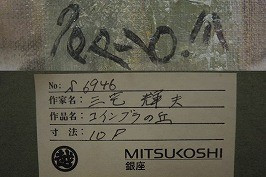 No: S 6946
作家名: 三宅 輝夫
作品名: コインブラの丘
寸法: 10P
MITSUKOSHI
銀座